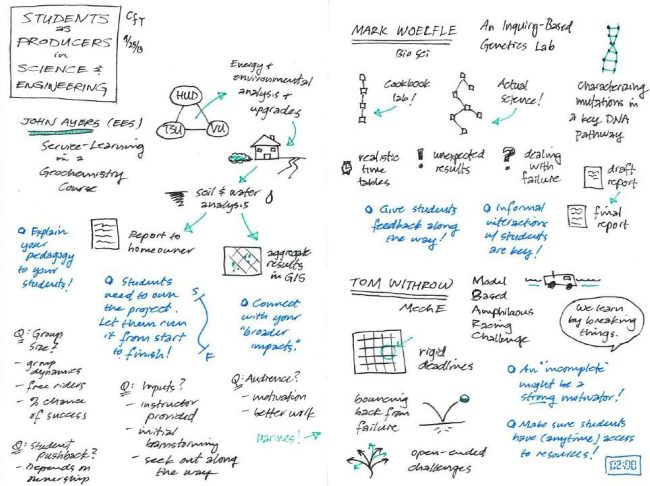 STUDENTS
as
PRODUCERS
in
SCIENCE &
ENGINEERING
CfT
9/25/13
JOHN AYERS (EES)
Service-Learning
in a
Geochemistry
Course
HUD
TSU
VU
Energy +
environmental
analysis +
upgrades
soil & water
analysis
Explain
your
pedagogy
to your
students!
Report to
homeowner
aggregate
results
in GIS
Students
need to own
the project.
Let them run
it from start
to finish!
S
F
Connect
with your
"broader
impacts."
Q: Group
size?
- group
dynamics
- free riders
- % chance
of success
Q: Student
pushback?
- Depends on
ownership
Q: Inputs?
- instructor
provided
- initial
brainstorming
- seek out along
the way
Q: Audience?
- motivation
- better work
Marines!
MARK WOELFLE
Bio Sci
An Inquiry-Based
Genetics Lab
Cookbook
lab!
Actual
science!
Characterizing
mutations in
a key DNA
pathway
realistic
time
tables
! unexpected
results
? dealing
with
failure
draft
report
final
report
Give students
feedback along
the way!
Informal
interactions
w/ students
are key!
TOM WITHROW
MechE
Model
Based
Amphibious
Racing
Challenge
We learn
by breaking
things.
rigid
deadlines
bouncing
back from
failure
open-ended
challenges
An "incomplete"
might be a
strong motivator!
Make sure students
have (anytime) access
to resources!
02:00